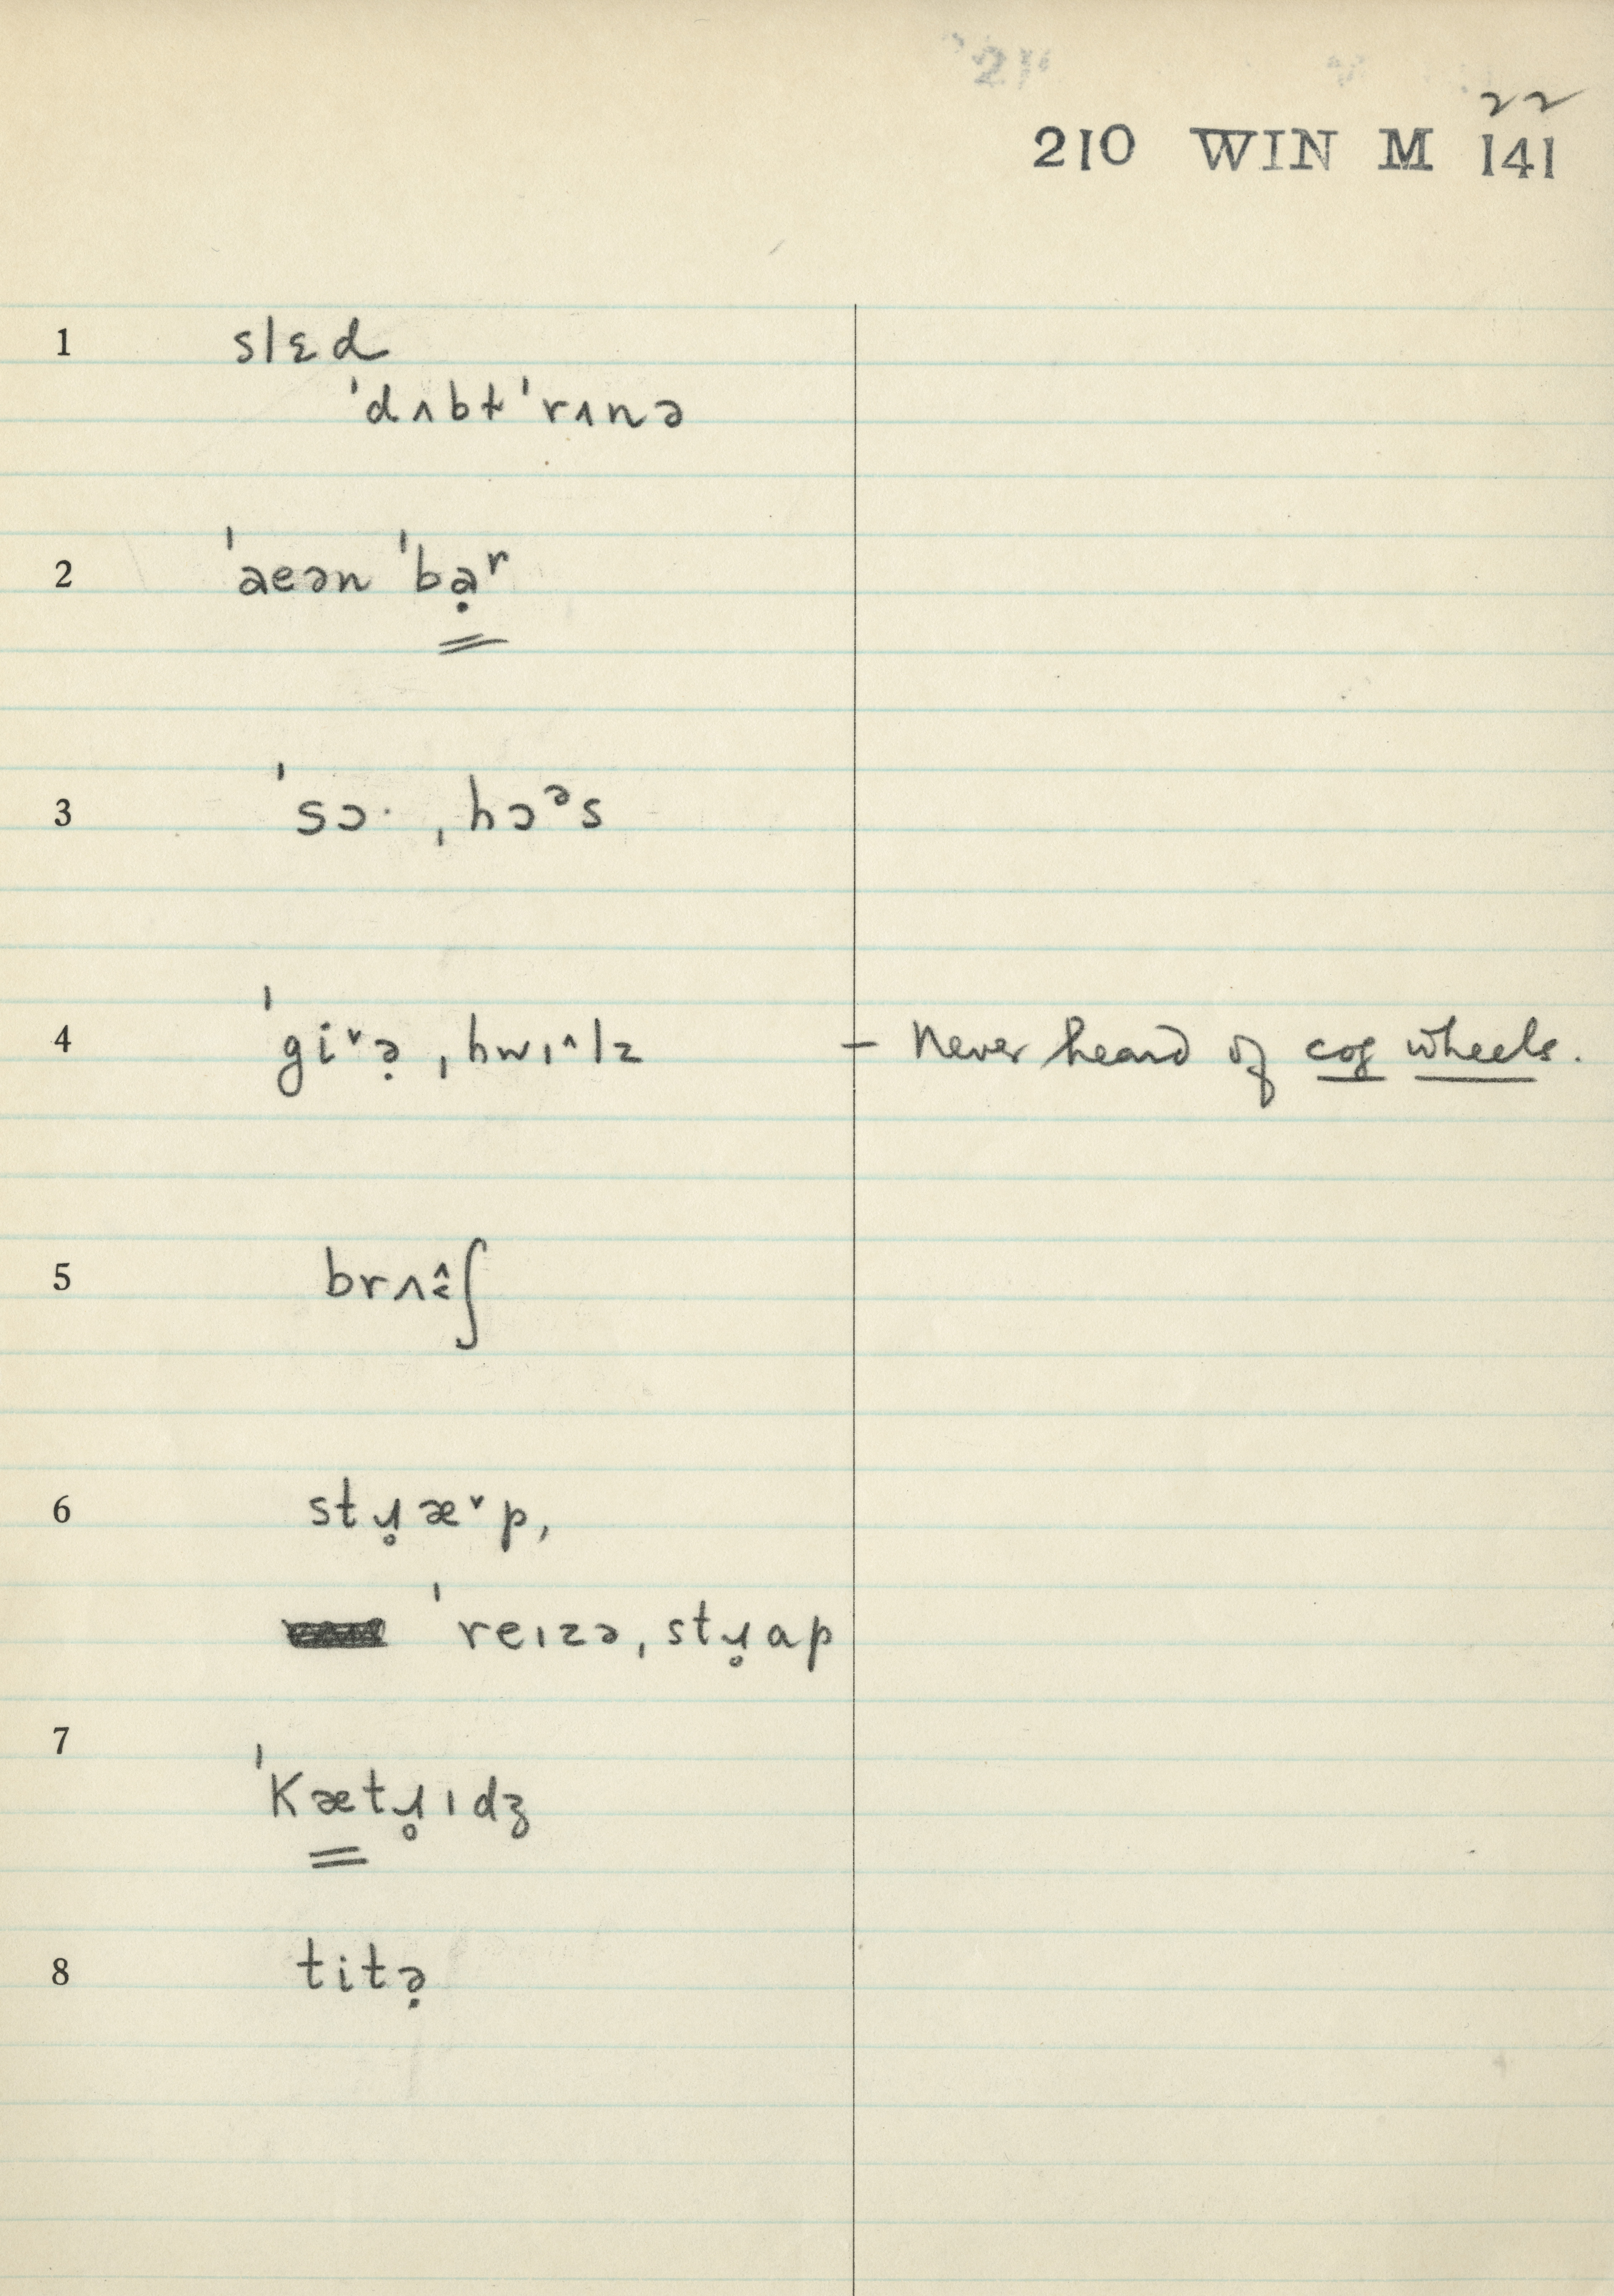 22
210 WIN M 141
1 slɛd
ˈdʌbɫˈrʌnə
2 ˈaeən ˈbạʳ
3 ˈsɔ· ˌhɔᵊs
4 ˈgi˅ə̣ ˌhwɪ^lz – Never heard of cog wheels.
5 brʌɨ̂ʃ
6 stɹ̥æ˅p,
ˈreɪzə, stɹ̥ap
7 ˈKætɹ̥ɪdʒ
8 titə̣